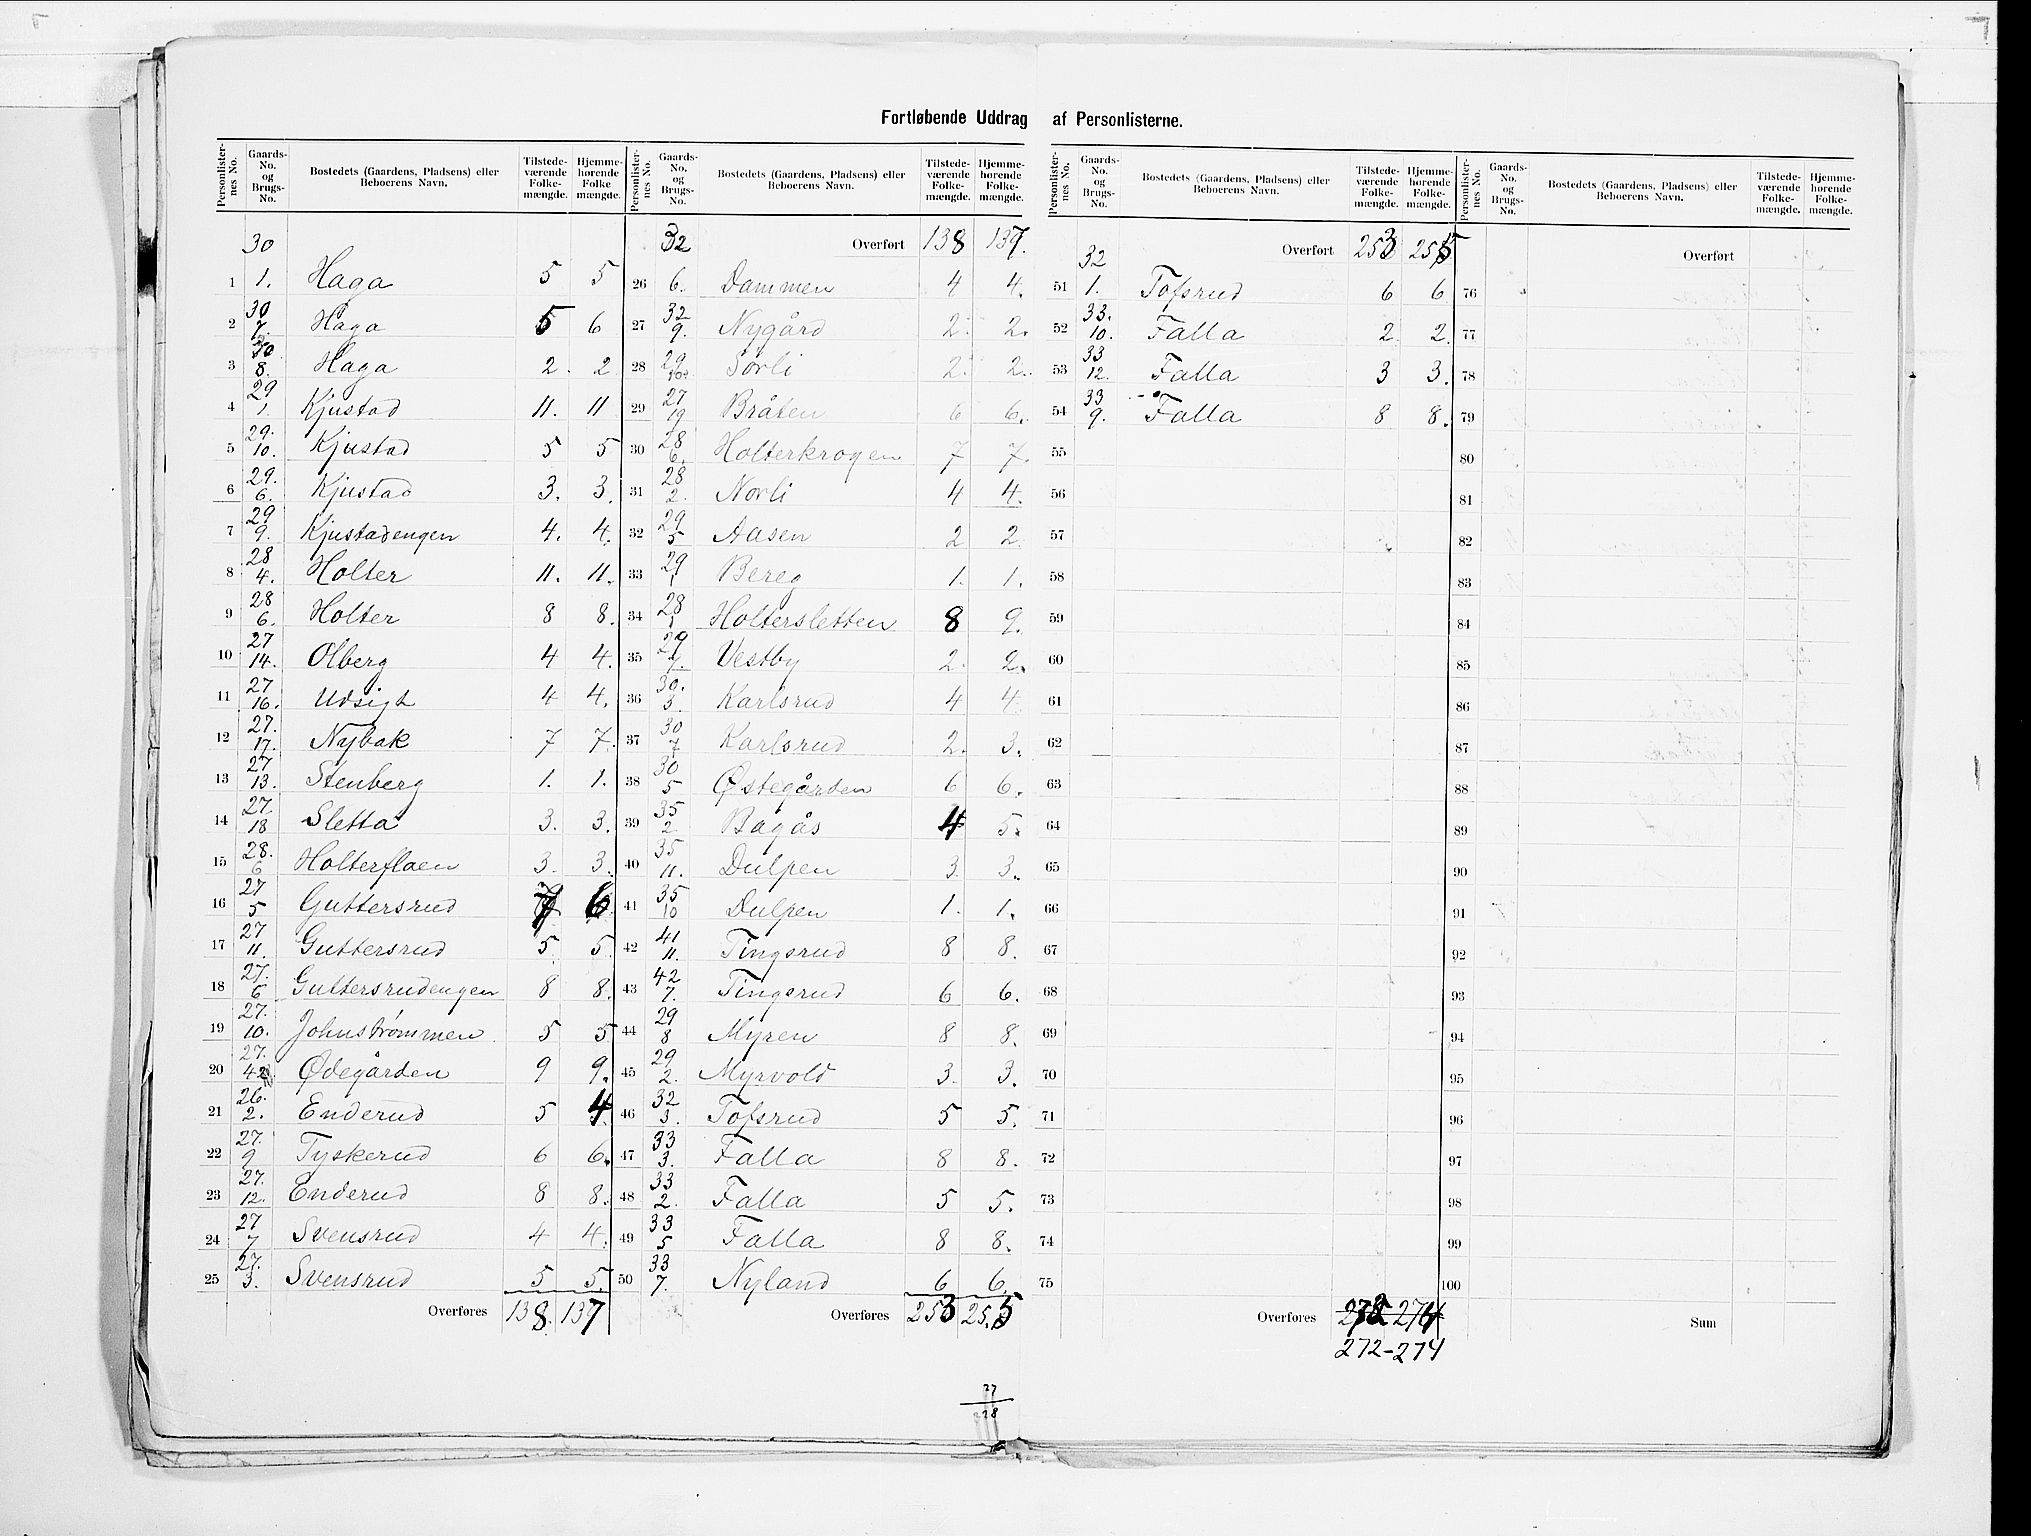 Fortløbende Uddrag af Personlisterne.
Personlister-nes No. Gaards-No. og Brugs-No. Bostedets (Gaardens, Pladsens) eller Beboerens Navn. Tilstede-værende Folke-mængde. Hjemme-hørende Folke-mængde.
30
1 1. Haga 5 5
30
2 7. Haga 5 6
30
3 8. Haga 2. 2
29
4 1. Kjustad 11. 11
29.
5 10. Kjustad 5 5
29.
6 6. Kjustad 3. 3.
29
7 9. Kjustadengen 4. 4.
28
8 4. Holter 11. 11.
28
9 6. Holter 8 8.
27
10 14. Olberg 4 4.
27
11 16. Udsigt 4 4.
27.
12 17. Nybak 7 7.
27
13 13. Stenberg 1. 1.
27.
14 18 Sletta 3. 3.
28.
15 6 Holterflaen 3. 3.
27
16 5 Guttersrud 7 6
27
17 11. Guttersrud 5 5
27.
18 6 Guttersrudengen 8 8.
27.
19 10. Johnstrømmen 5 5
27.
20 42 Ødegården 9 9.
26.
21 2. Enderud 5 4
27.
22 9 Tyskerud 6 6.
27.
23 12. Enderud 8 8.
27
24 7 Svensrud 4 4.
27.
25 3. Svensrud 5 5
Overføres 138. 137
Personlister-nes No. Gaards-No. og Brugs-No. Bostedets (Gaardens, Pladsens) eller Beboerens Navn. Tilstede-værende Folke-mængde. Hjemme-hørende Folke-mængde.
32 Overført 138 137.
26 6. Dammen 4 4.
32
27 9. Nygård 2. 2.
29
28 10. Sørli 2. 2.
27
29 19 Bråten 6 6.
28
30 6. Holterkrogen 7 7.
28
31 2. Norli 4 4.
29
32 5 Aasen 2 2.
29
33 1 Bereg 1. 1.
28
34 1 Holtersletten 8 9.
29
35 7. Vestby 2. 2.
30.
36 3. Karlsrud 4 4
30
37 7 Karlsrud 2. 3.
30
38 5 Østegården 6 6.
35
39 2. Bagås 4 5.
35
40 11. Dulpen 3. 3.
35
41 10 Dulpen 1. 1.
41
42 11. Tingsrud 8 8.
42
43 7. Tingsrud 6 6.
29
44 8 Myren 8 8.
29
45 2. Myrvold 3. 3.
32
46 3. Tofsrud 5 5.
33
47 3. Falla 8 8.
33
48 2. Falla 5 5.
33
49 5 Falla 8 8.
33
50 7. Nyland 6 6.
Overføres 253 255
27
228
Personlister-nes No. Gaards-No. og Brugs-No. Bostedets (Gaardens, Pladsens) eller Beboerens Navn. Tilstede-værende Folke-mængde. Hjemme-hørende Folke-mængde.
32 Overført 253 255
51 1. Tofsrud 6 6
33.
52 10. Falla 2 2.
33
53 12. Falla 3 3.
33
54 9. Falla 8 8.
55
56
57
58
59
60
61
62
63
64
65
66
67
68
69
70
71
72
73
74
75
Overføres 274
272-274
Personlister-nes No. Gaards-No. og Brugs-No. Bostedets (Gaardens, Pladsens) eller Beboerens Navn. Tilstede-værende Folke-mængde. Hjemme-hørende Folke-mængde.
Overført
76
77
78
79
80
81
82
83
84
85
86
87
88
89
90
91
92
93
94
95
96
97
98
99
100
Sum